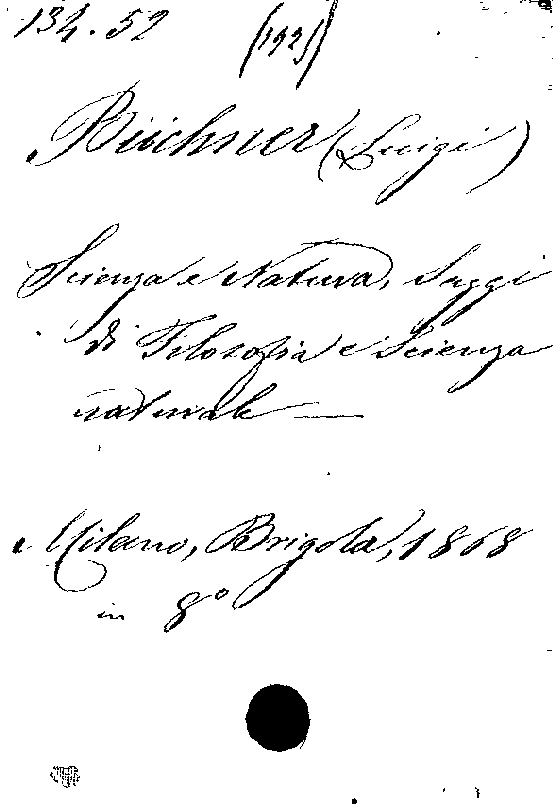 134.52 (1925)
Büchner (Luigi)
Scienza e Natura, Saggi
di Filosofia e Scienza
naturale —
Milano, Brigola, 1868
in 8°